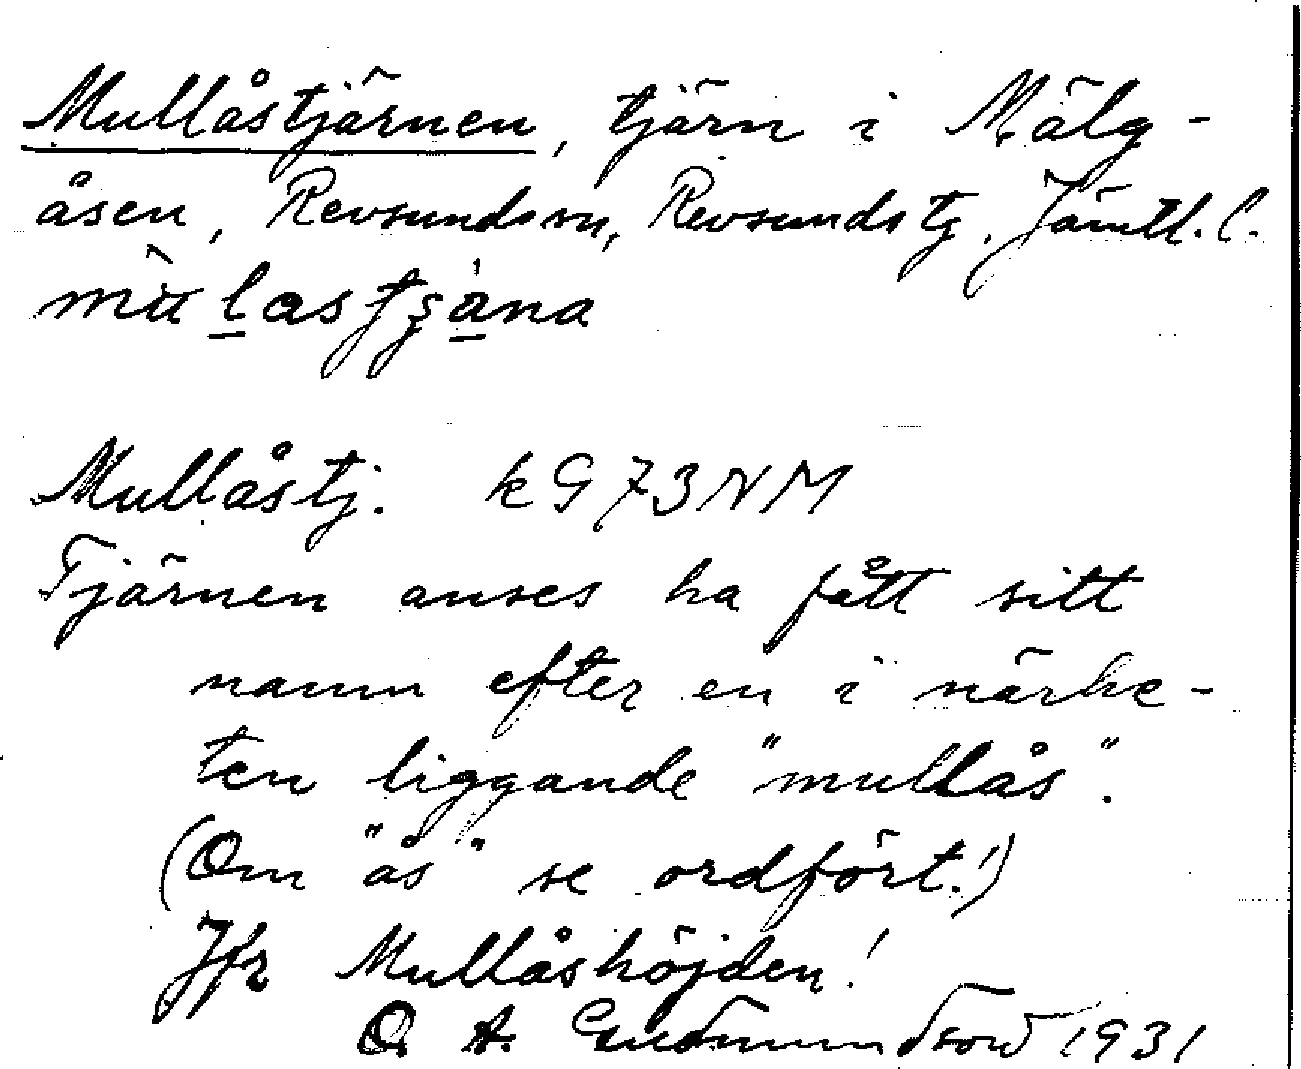 Mullåstjärnen, tjärn i Mälg-
åsen, Revsunds sn, Revsunds tg. Jämtl. l.
Mullåstj. kG 73 NM
Tjärnen anses ha fått sitt
namn efter en i närhe-
ten liggande "mullås".
(Om "ås" se ordfört.!)
Jfr Mullåshöjden!
O. A. Gudmundsson 1931